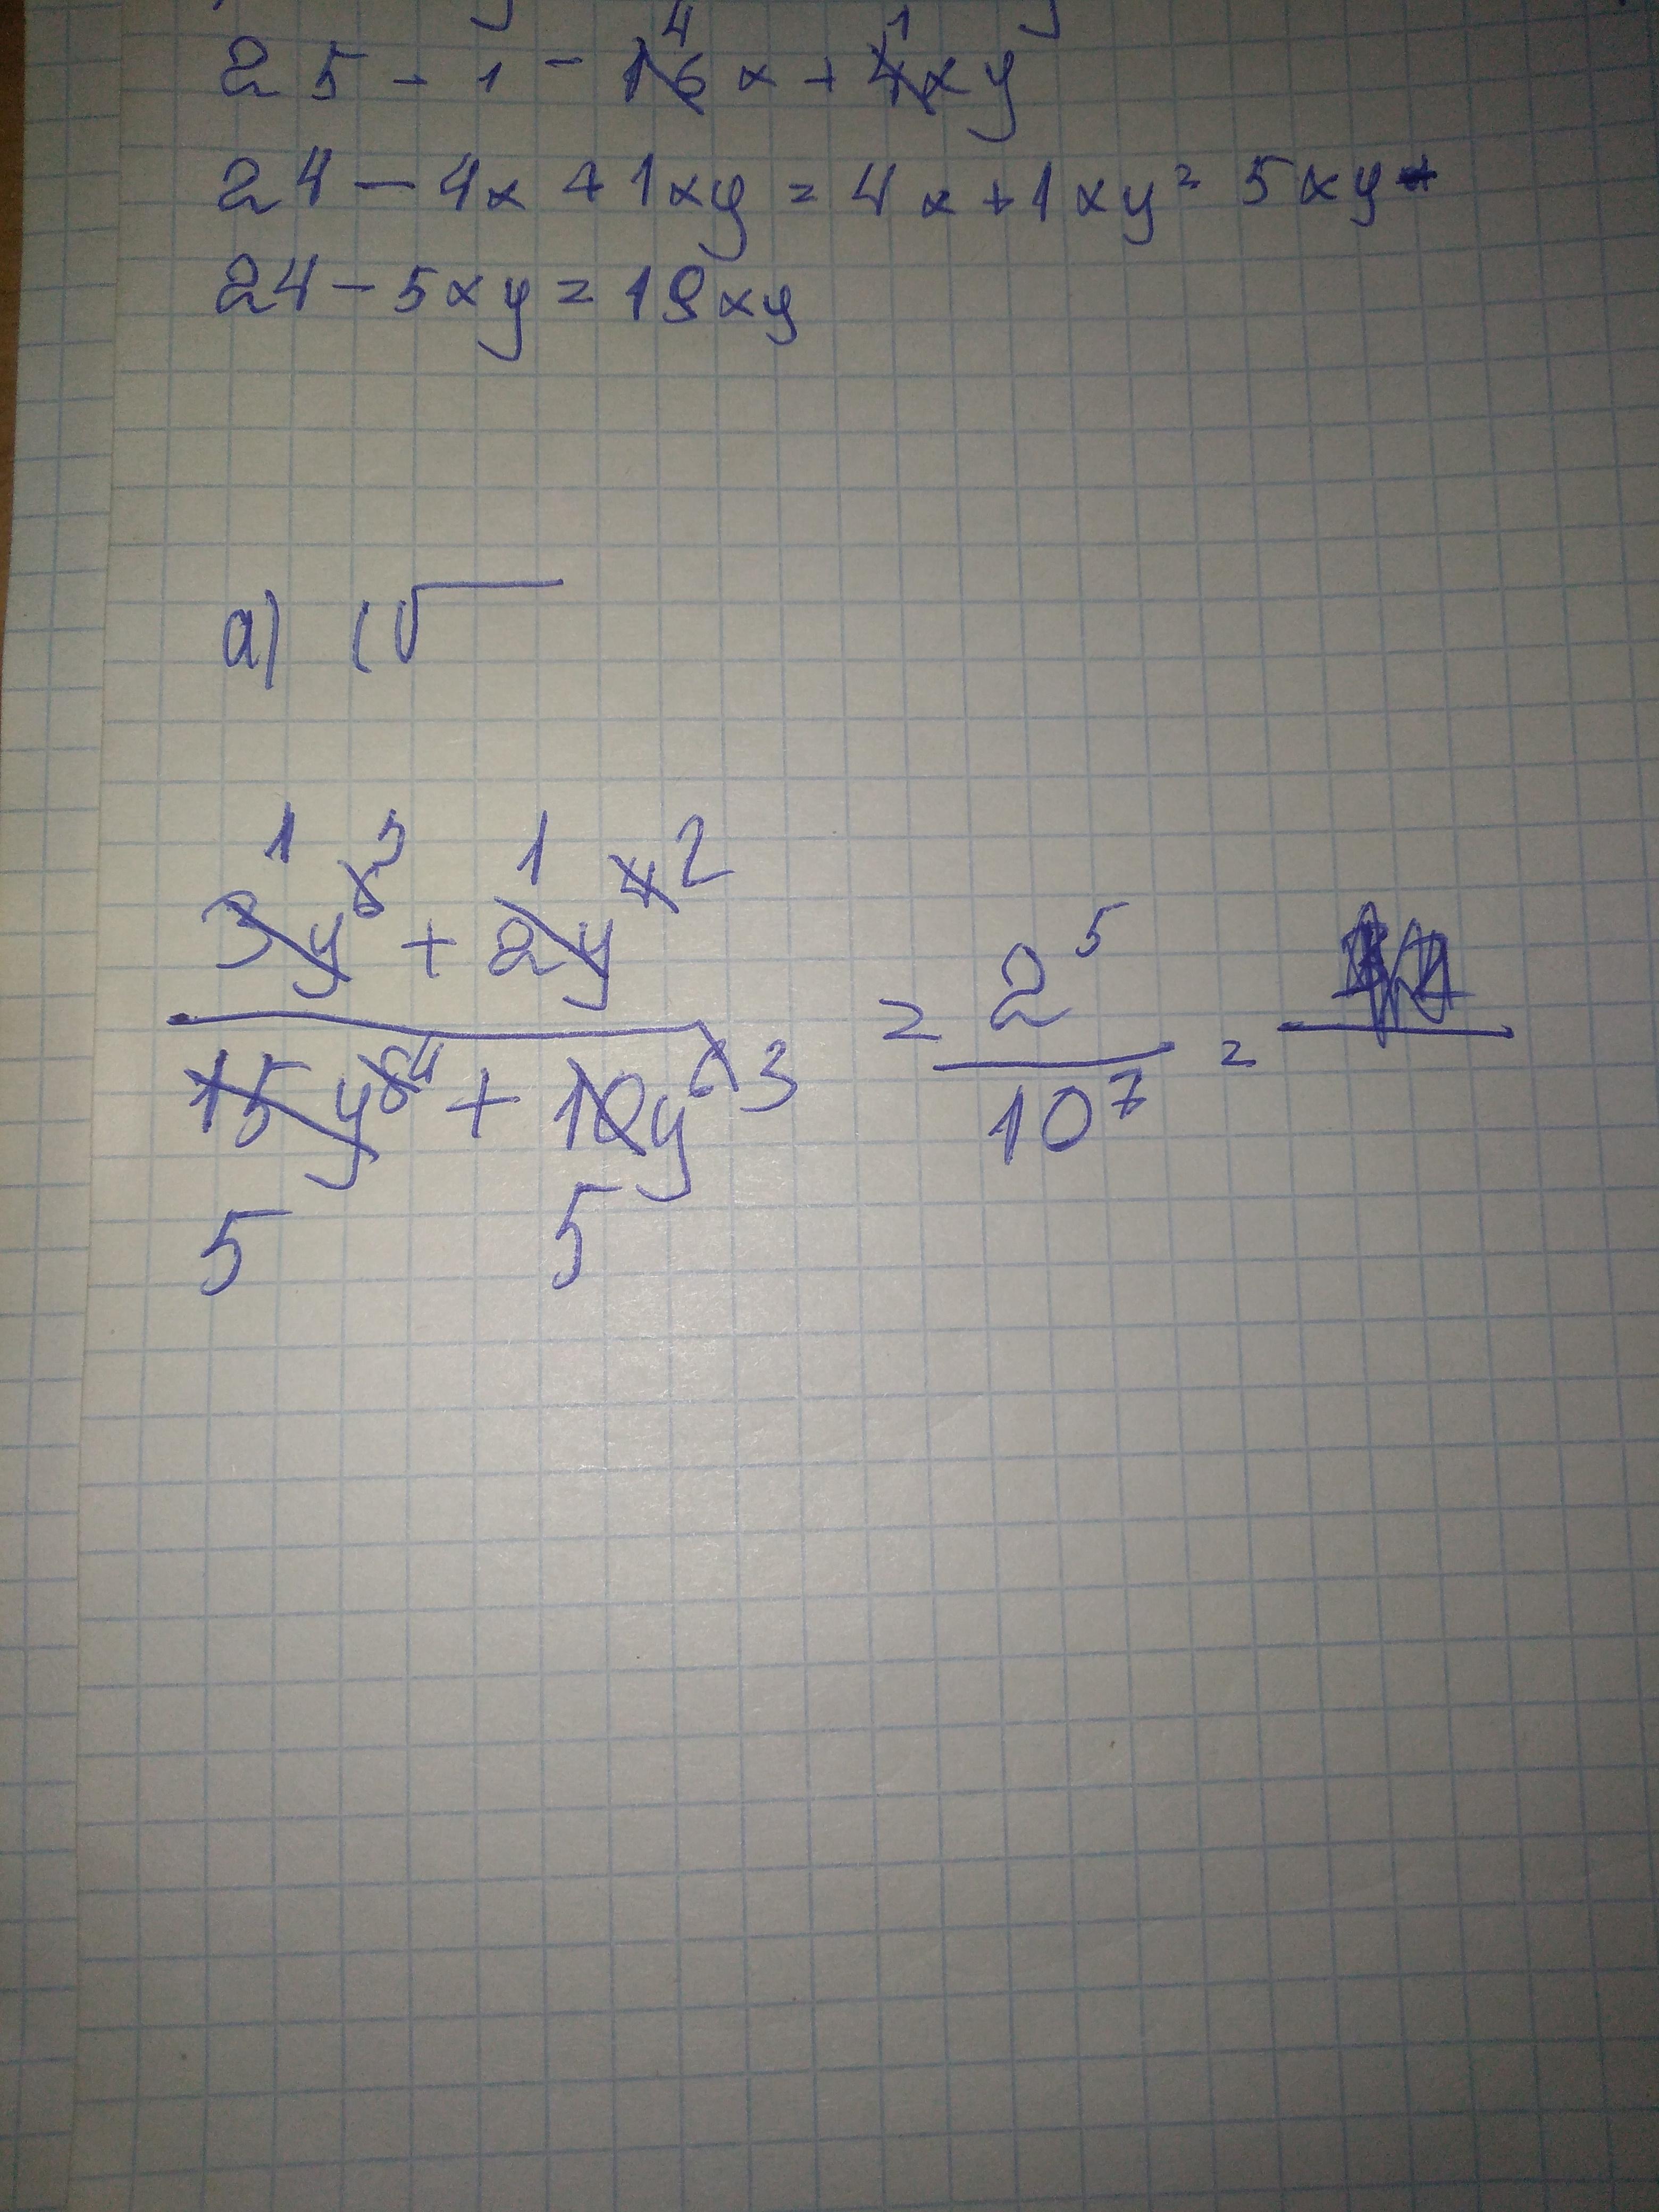 25 - 1 - 16 4 x + 4 1 xy
24 - 4x + 1xy = 4x + 1xy = 5xy
24 - 5xy = 19xy
a) (√
1 3 1 2
3y + 2y 4
15y 8 4 + 10y 3 = 2⁵ / 10⁷ =
5 5